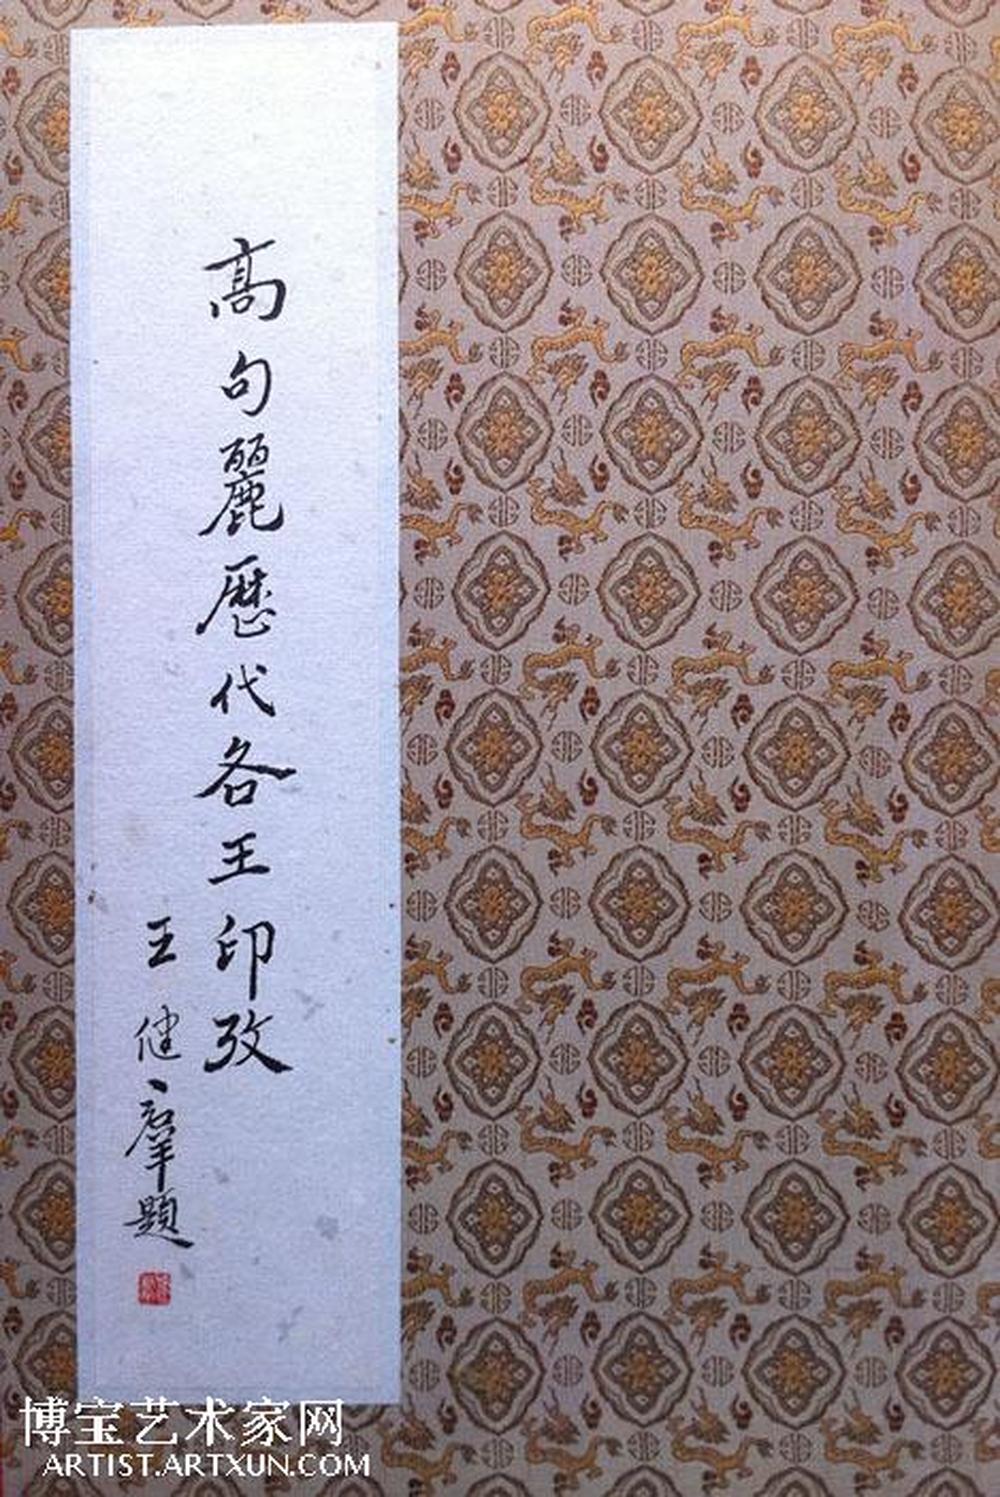 高句麗歷代各王印攷
王健羣題
博宝艺术家网
ARTIST.ARTXUN.COM